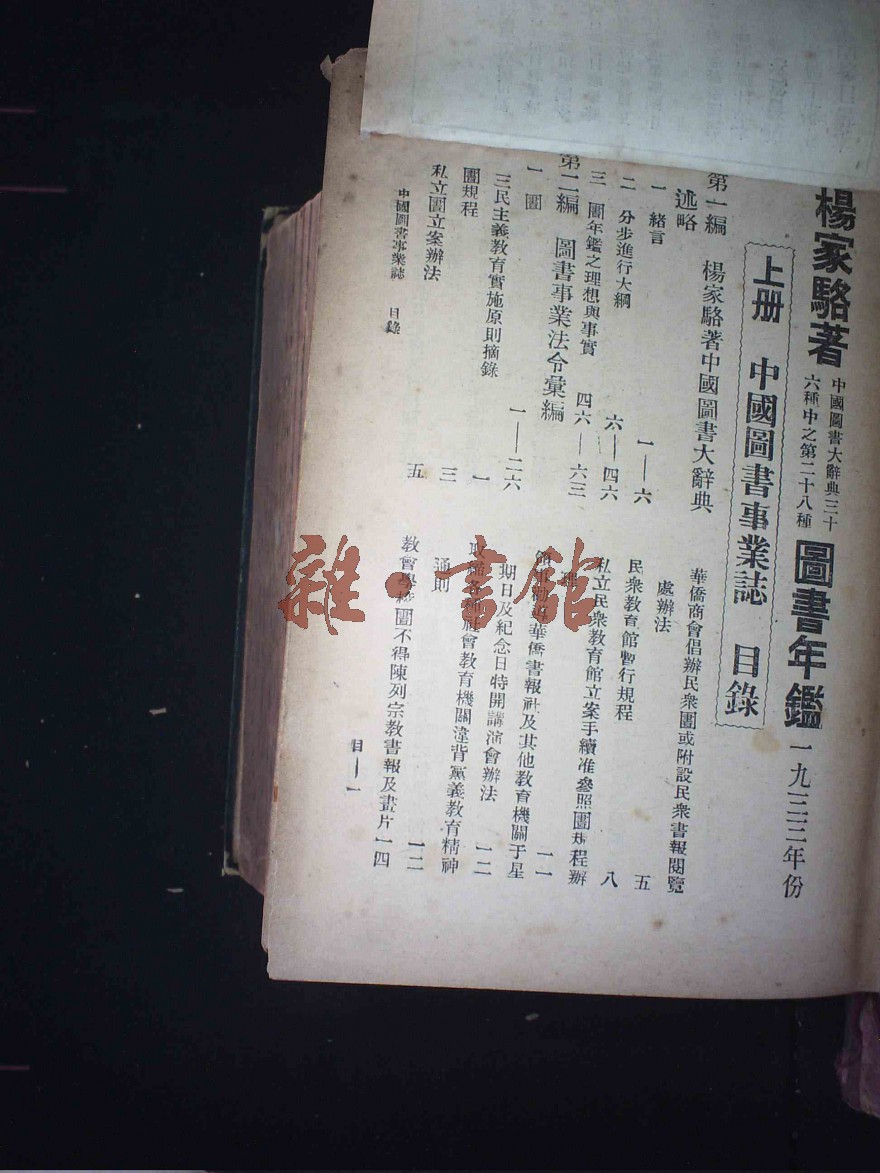 楊家駱著
中國圖書大辭典三十
六種中之第二十八種
圖書年鑑
一九三三年份
上册 中國圖書事業誌 目錄
第一編 楊家駱著中國圖書大辭典
述略
一 緒言 一—六
二 分步進行大綱 六—四六
三 圕年鑑之理想與事實 四六—六三
第二編 圖書事業法令彙編
一 圕 一—二六
三民主義教育實施原則摘錄 一
圕規程 三
私立圕立案辦法 五
華僑商會倡辦民衆圕或附設民衆書報閱覽
處辦法 五
民衆教育館暫行規程 八
私立民衆教育館立案手續准參照圕規程辦
理 一一
華僑書報社及其他教育機關于星
期日及紀念日特開講演會辦法 一二
取締各種社會教育機關違背黨義教育精神
通則 一二
教會學校圕不得陳列宗教書報及畫片 一四
中國圖書事業誌 目錄
目—一
雜·書館